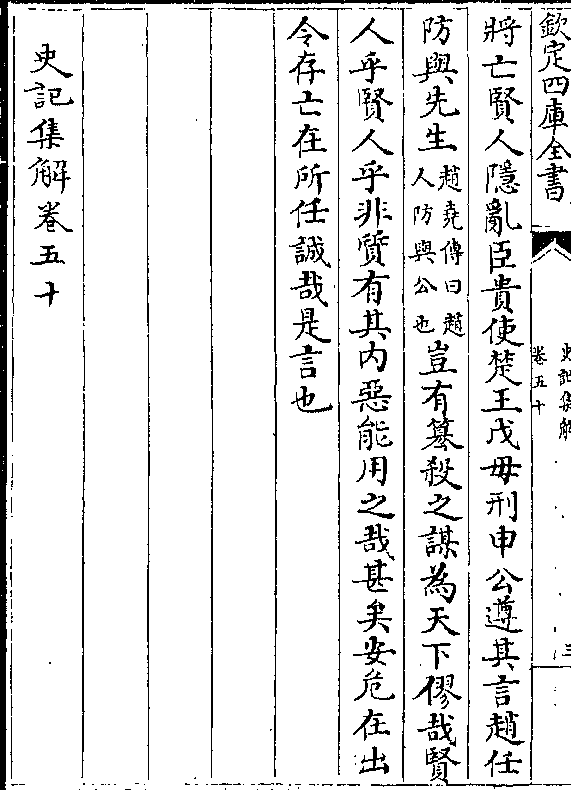 欽定四庫全書
史記集解
卷五十
三
將亡賢人隱亂臣貴使楚王戊毋刑申公遵其言趙任
防與先生趙堯傳曰趙人防與公也豈有篡殺之謀為天下僇哉賢
人乎賢人乎非質有其內惡能用之哉甚矣安危在出
令存亡在所任誠哉是言也
史記集解卷五十